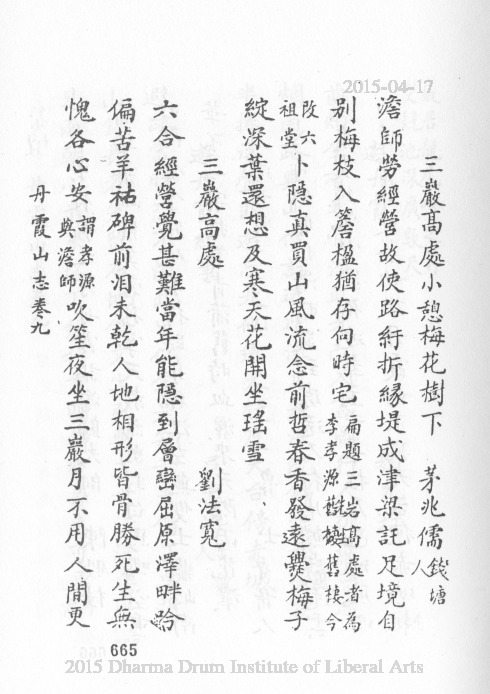 2015-04-17
三巖高處小憩梅花樹下　茅兆儒錢塘人
澹師勞經營故使路紆折緣堤成津梁託足境自
別梅枝入簷楹猶存何時宅扁題三岩高處者為李孝源舊棲今
改六祖堂卜隱真買山風流念前哲春香發遠㸑梅子
綻深葉還想及寒天花開坐瑤雪
三巖高處　劉法寬
六合經營覺甚難當年能隱到層巒屈原澤畔吟
偏苦羊祜碑前泪未乾人地相形皆骨勝死生無
愧各心安謂孝源與澹師吹笙夜坐三巖月不用人間更
丹霞山志卷九
665
2015 Dharma Drum Institute of Liberal Arts